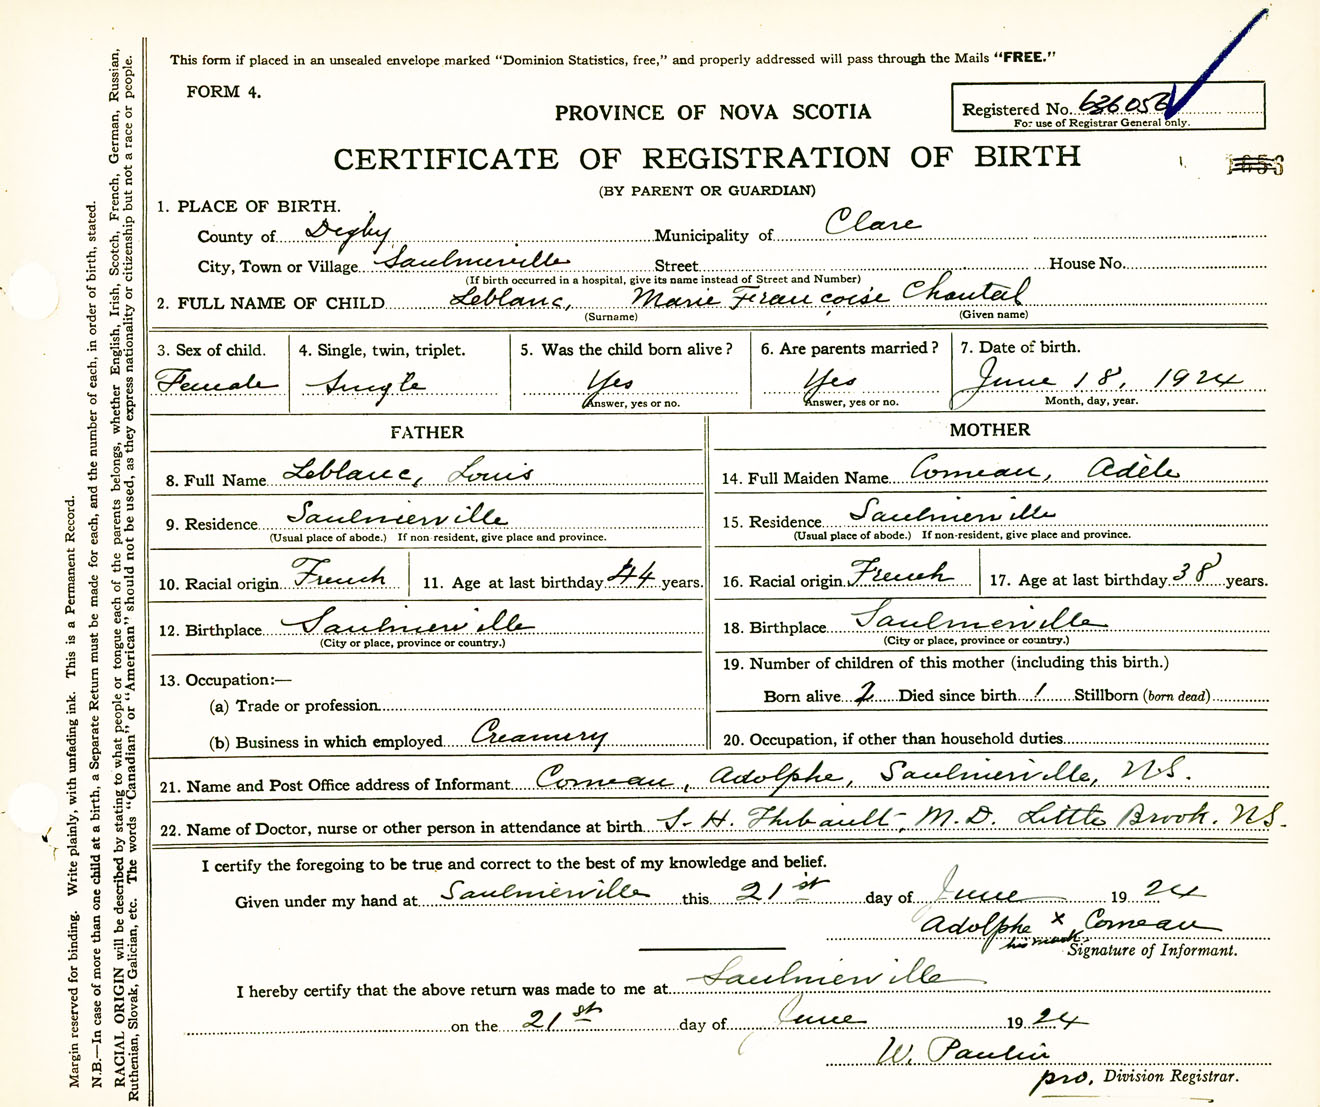 This form if placed in an unsealed envelope marked "Dominion Statistics, free," and properly addressed will pass through the Mails "FREE."
FORM 4.
PROVINCE OF NOVA SCOTIA
Registered No. 636056
For use of Registrar General only.
CERTIFICATE OF REGISTRATION OF BIRTH
(BY PARENT OR GUARDIAN)
1. PLACE OF BIRTH.
County of Digby Municipality of Clare
City, Town or Village Saulnierville Street House No.
(If birth occurred in a hospital, give its name instead of Street and Number)
2. FULL NAME OF CHILD Leblanc, Marie Françoise Chantal
(Surname) (Given name)
3. Sex of child. 4. Single, twin, triplet. 5. Was the child born alive? 6. Are parents married? 7. Date of birth.
Female Single Yes Yes June 18, 1924
Answer, yes or no. Answer, yes or no. Month, day, year.
FATHER MOTHER
8. Full Name Leblanc, Louis 14. Full Maiden Name Comeau, Adèle
9. Residence Saulnierville 15. Residence Saulnierville
(Usual place of abode.) If non-resident, give place and province. (Usual place of abode.) If non-resident, give place and province.
10. Racial origin French 11. Age at last birthday 44 years. 16. Racial origin French 17. Age at last birthday 38 years.
12. Birthplace Saulnierville 18. Birthplace Saulnierville
(City or place, province or country.) (City or place, province or country.)
13. Occupation:— 19. Number of children of this mother (including this birth.)
(a) Trade or profession Born alive 2 Died since birth 1 Stillborn (born dead)
(b) Business in which employed Creamery 20. Occupation, if other than household duties
21. Name and Post Office address of Informant Comeau, Adolphe, Saulnierville, N.S.
22. Name of Doctor, nurse or other person in attendance at birth S. H. Thibault, M.D. Little Brook. N.S.
I certify the foregoing to be true and correct to the best of my knowledge and belief.
Given under my hand at Saulnierville this 21st day of June 1924
Adolphe x Comeau
his mark
Signature of Informant.
I hereby certify that the above return was made to me at Saulnierville
on the 21st day of June 1924
W. Paulin
pro. Division Registrar.
Margin reserved for binding. Write plainly, with unfading ink. This is a Permanent Record.
N.B.—In case of more than one child at a birth, a Separate Return must be made for each, and the number of each, in order of birth, stated.
RACIAL ORIGIN will be described by stating to what people or tongue each of the parents belongs, whether English, Irish, Scotch, French, German, Russian,
Ruthenian, Slovak, Galician, etc. The words "Canadian" or "American" should not be used, as they express nationality or citizenship but not a race or people.